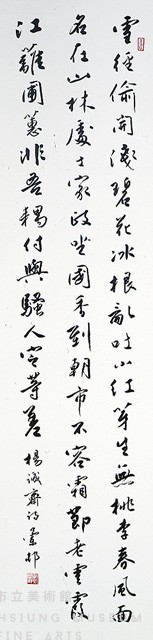 雪徑偷開淺碧花冰根亂吐小紅芽生無桃李春風面
名在山林處士家政坐國香到朝市不容霜節老雲霞
江蘺圃蕙非吾耦付與騷人定等差 楊誠齋詩
市立美術館
HSIUNG MUSEUM
FINE ARTS